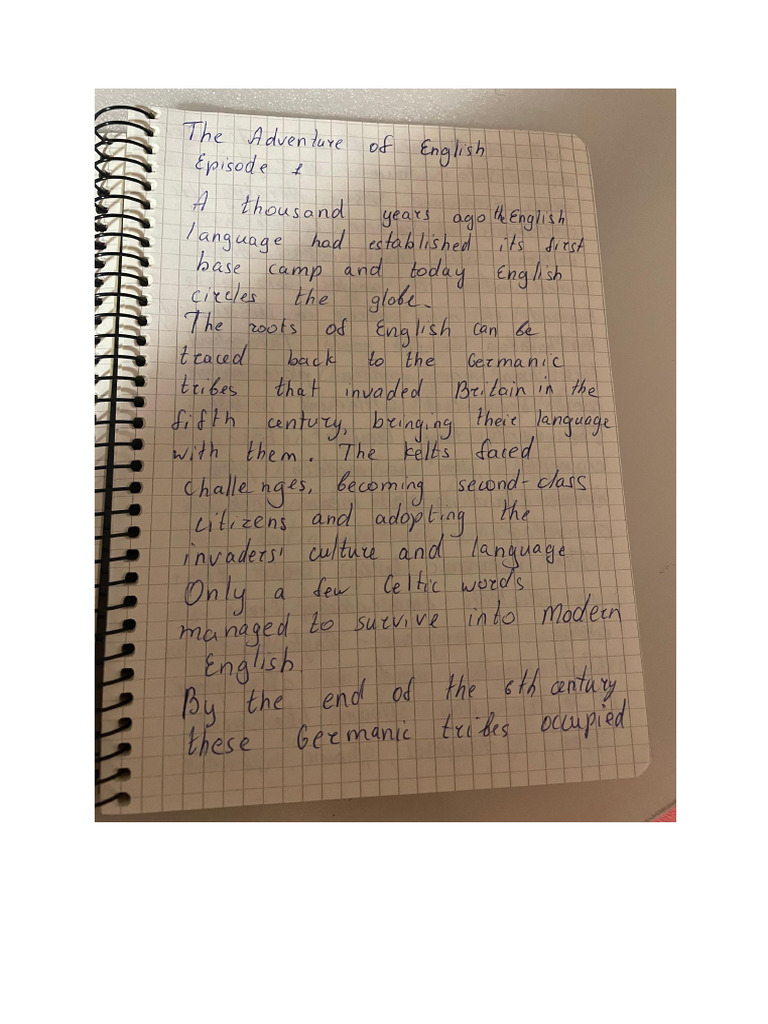 The Adventure of English
Episode 1
A thousand years ago the English
language had established its first
base camp and today English
circles the globe.
The roots of English can be
traced back to the Germanic
tribes that invaded Britain in the
fifth century, bringing their language
with them. The kelts faced
challenges, becoming second-class
citizens and adopting the
invaders' culture and language
Only a few Celtic words
managed to survive into Modern
English
By the end of the 6th century
these Germanic tribes occupied